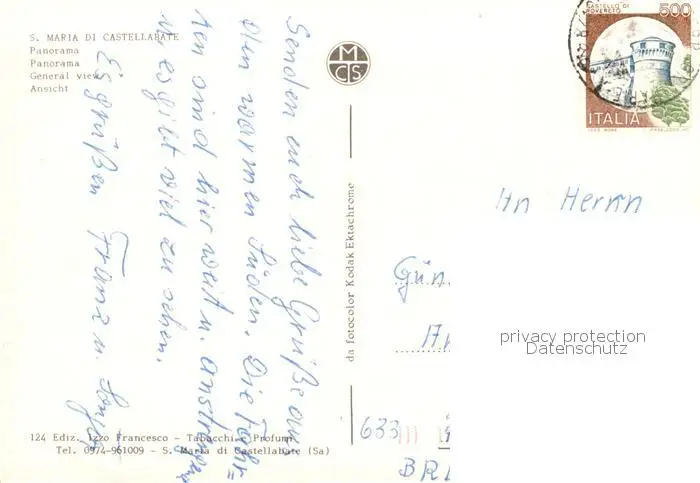 S. MARIA DI CASTELLABATE
Panorama
Panorama
General view
Ansicht
MCS
CASTELLO DI ROVERETO
500
ITALIA
Senden euch liebe Grüße aus
dem warmen Süden. Die Fahr=
ten sind hier weit u. anstrengend
es gibt viel zu sehen.
Es grüßen Franz u.
da fotocolor Kodak Ektachrome
An Herrn
Gün
privacy protection
Datenschutz
633
BR
124 Ediz. Izzo Francesco - Tabacchi - Profumi
Tel. 0974-961009 - S. Maria di Castellabate (Sa)